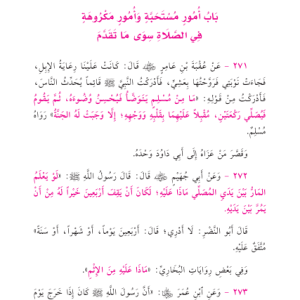 بَابُ أُمُورٍ مُسْتَحَبَّةٍ وَأُمُورٍ مَكْرُوهَةٍ
فِي الصَّلَاةِ سِوَى مَا تَقَدَّمَ
٢٧١ - عَنْ عُقْبَةَ بْنِ عَامِرٍ ﷺ، قَالَ: كَانَتْ عَلَيْنَا رِعَايَةُ الإِبِلِ،
فَجَاءَتْ نَوْبَتِي فَرَوَّحْتُهَا بِعَشِيٍّ، فَأَدْرَكْتُ النَّبِيَّ ﷺ قَائِماً يُحَدِّثُ النَّاسَ،
فَأَدْرَكْتُ مِنْ قَوْلِهِ: «مَا مِنْ مُسْلِمٍ يَتَوَضَّأُ فَيُحْسِنُ وُضُوءَهُ، ثُمَّ يَقُومُ
فَيُصَلِّي رَكْعَتَيْنِ، مُقْبِلاً عَلَيْهِمَا بِقَلْبِهِ وَوَجْهِهِ؛ إِلَّا وَجَبَتْ لَهُ الجَنَّةُ» رَوَاهُ
مُسْلِمٌ.
وَقَصَّرَ مَنْ عَزَاهُ إِلَى أَبِي دَاوُدَ وَحْدَهُ.
٢٧٢ - وَعَنْ أَبِي جُهَيْمٍ ﷺ، قَالَ: قَالَ رَسُولُ اللَّهِ ﷺ: «لَوْ يَعْلَمُ
المَارُّ بَيْنَ يَدَيِ المُصَلِّي مَاذَا عَلَيْهِ؛ لَكَانَ أَنْ يَقِفَ أَرْبَعِينَ خَيْراً لَهُ مِنْ أَنْ
يَمُرَّ بَيْنَ يَدَيْهِ».
قَالَ أَبُو النَّضْرِ: لَا أَدْرِي؛ قَالَ: أَرْبَعِينَ يَوْماً، أَوْ شَهْراً، أَوْ سَنَةً» مُتَّفَقٌ
عَلَيْهِ.
وَفِي بَعْضِ رِوَايَاتِ البُخَارِيِّ: «مَاذَا عَلَيْهِ مِنَ الإِثْمِ».
٢٧٣ - وَعَنِ ابْنِ عُمَرَ ﷺ: «أَنَّ رَسُولَ اللَّهِ ﷺ كَانَ إِذَا خَرَجَ يَوْمَ